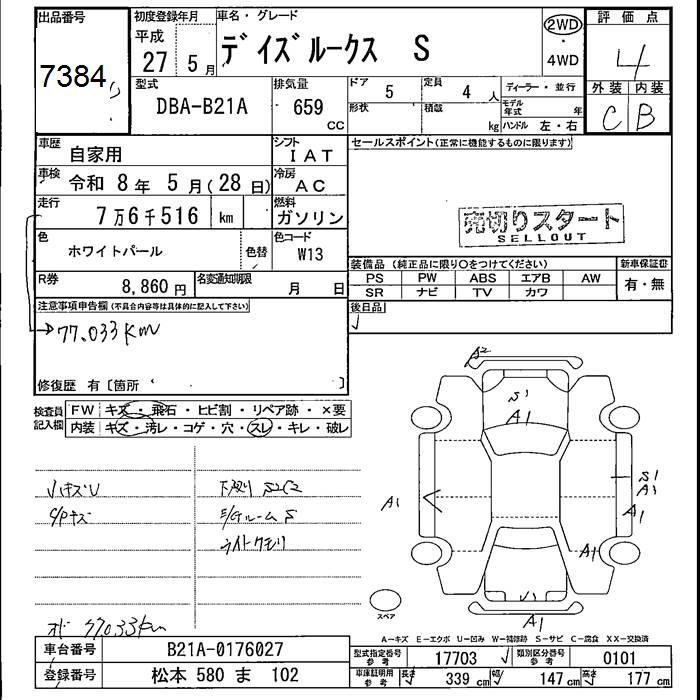 出品番号
7384
初度登録年月
平成
27 5月
車名・グレード
デイズルークス S
2WD
・
4WD
評価点
4
外装 内装
C B
型式
DBA-B21A
排気量
659
CC
ドア 5
定員 4 人
形状
積載 kg
ディーラー・並行
モデル年式 年
ハンドル 左・右
車歴
自家用
シフト
IAT
セールスポイント(正常に機能するものに限ります)
車検
令和 8年 5月(28日)
冷房
AC
走行
7万6千516 km
燃料
ガソリン
売切りスタート
SELLOUT
色
ホワイトパール
色替
色コード
W13
装備品 (純正品に限り○をつけてください)
新車保証書
PS PW ABS エアB AW
SR ナビ TV カワ
有・無
R券
8,860円
名変通知期限
月 日
後日品
注意事項申告欄(不具合内容等は具体的に記入して下さい)
→77.033km
修復歴 有〔箇所 〕
検査員
記入欄
FW キズ・飛石・ヒビ割・リペア跡・×要
内装 キズ・汚レ・コゲ・穴・スレ・キレ・破レ
A2
S1
A1
小キズU
下廻り S2C2
C/Pキズ
E/Gルーム S
ライトクモリ
A1
S1
A1
A1
A1
A1
スペア
77033km
A-キズ E-エクボ U-凹み W-補修跡 S-サビ C-腐食 XX-交換済
車台番号
B21A-0176027
型式指定番号
参考
17703
類別区分番号
参考
0101
登録番号
松本 580 ま 102
車庫証明用
参考
長さ 339cm
幅 147cm
高さ 177cm